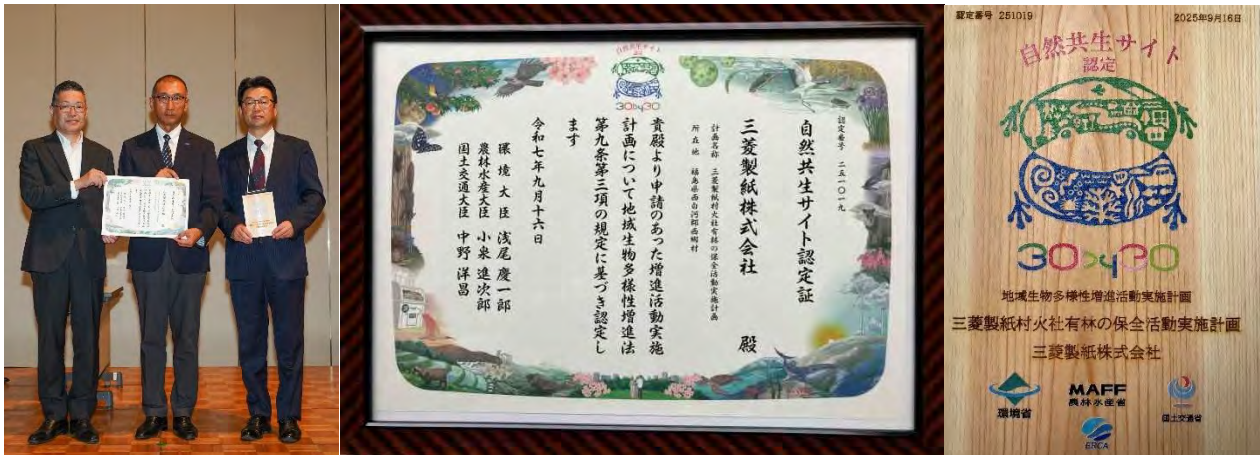 自然共生サイト
認定
30by30
認定番号 二五一〇一九
自然共生サイト認定証
三菱製紙株式会社 殿
計画名称 三菱製紙村火社有林の保全活動実施計画
所在地 福島県西白河郡西郷村
貴殿より申請のあった増進活動実施
計画について地域生物多様性増進法
第九条第三項の規定に基づき認定し
ます
令和七年九月十六日
環境大臣 浅尾慶一郎
農林水産大臣 小泉進次郎
国土交通大臣 中野洋昌
認定番号 251019
2025年9月16日
自然共生サイト
認定
30by30
地域生物多様性増進活動実施計画
三菱製紙村火社有林の保全活動実施計画
三菱製紙株式会社
環境省
MAFF
農林水産省
国土交通省
ERCA